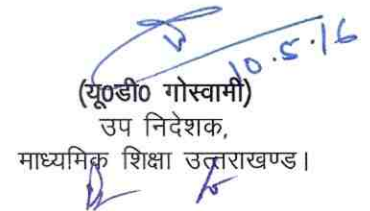 10.5.16
(यू०डी० गोस्वामी)
उप निदेशक,
माध्यमिक शिक्षा उत्तराखण्ड।